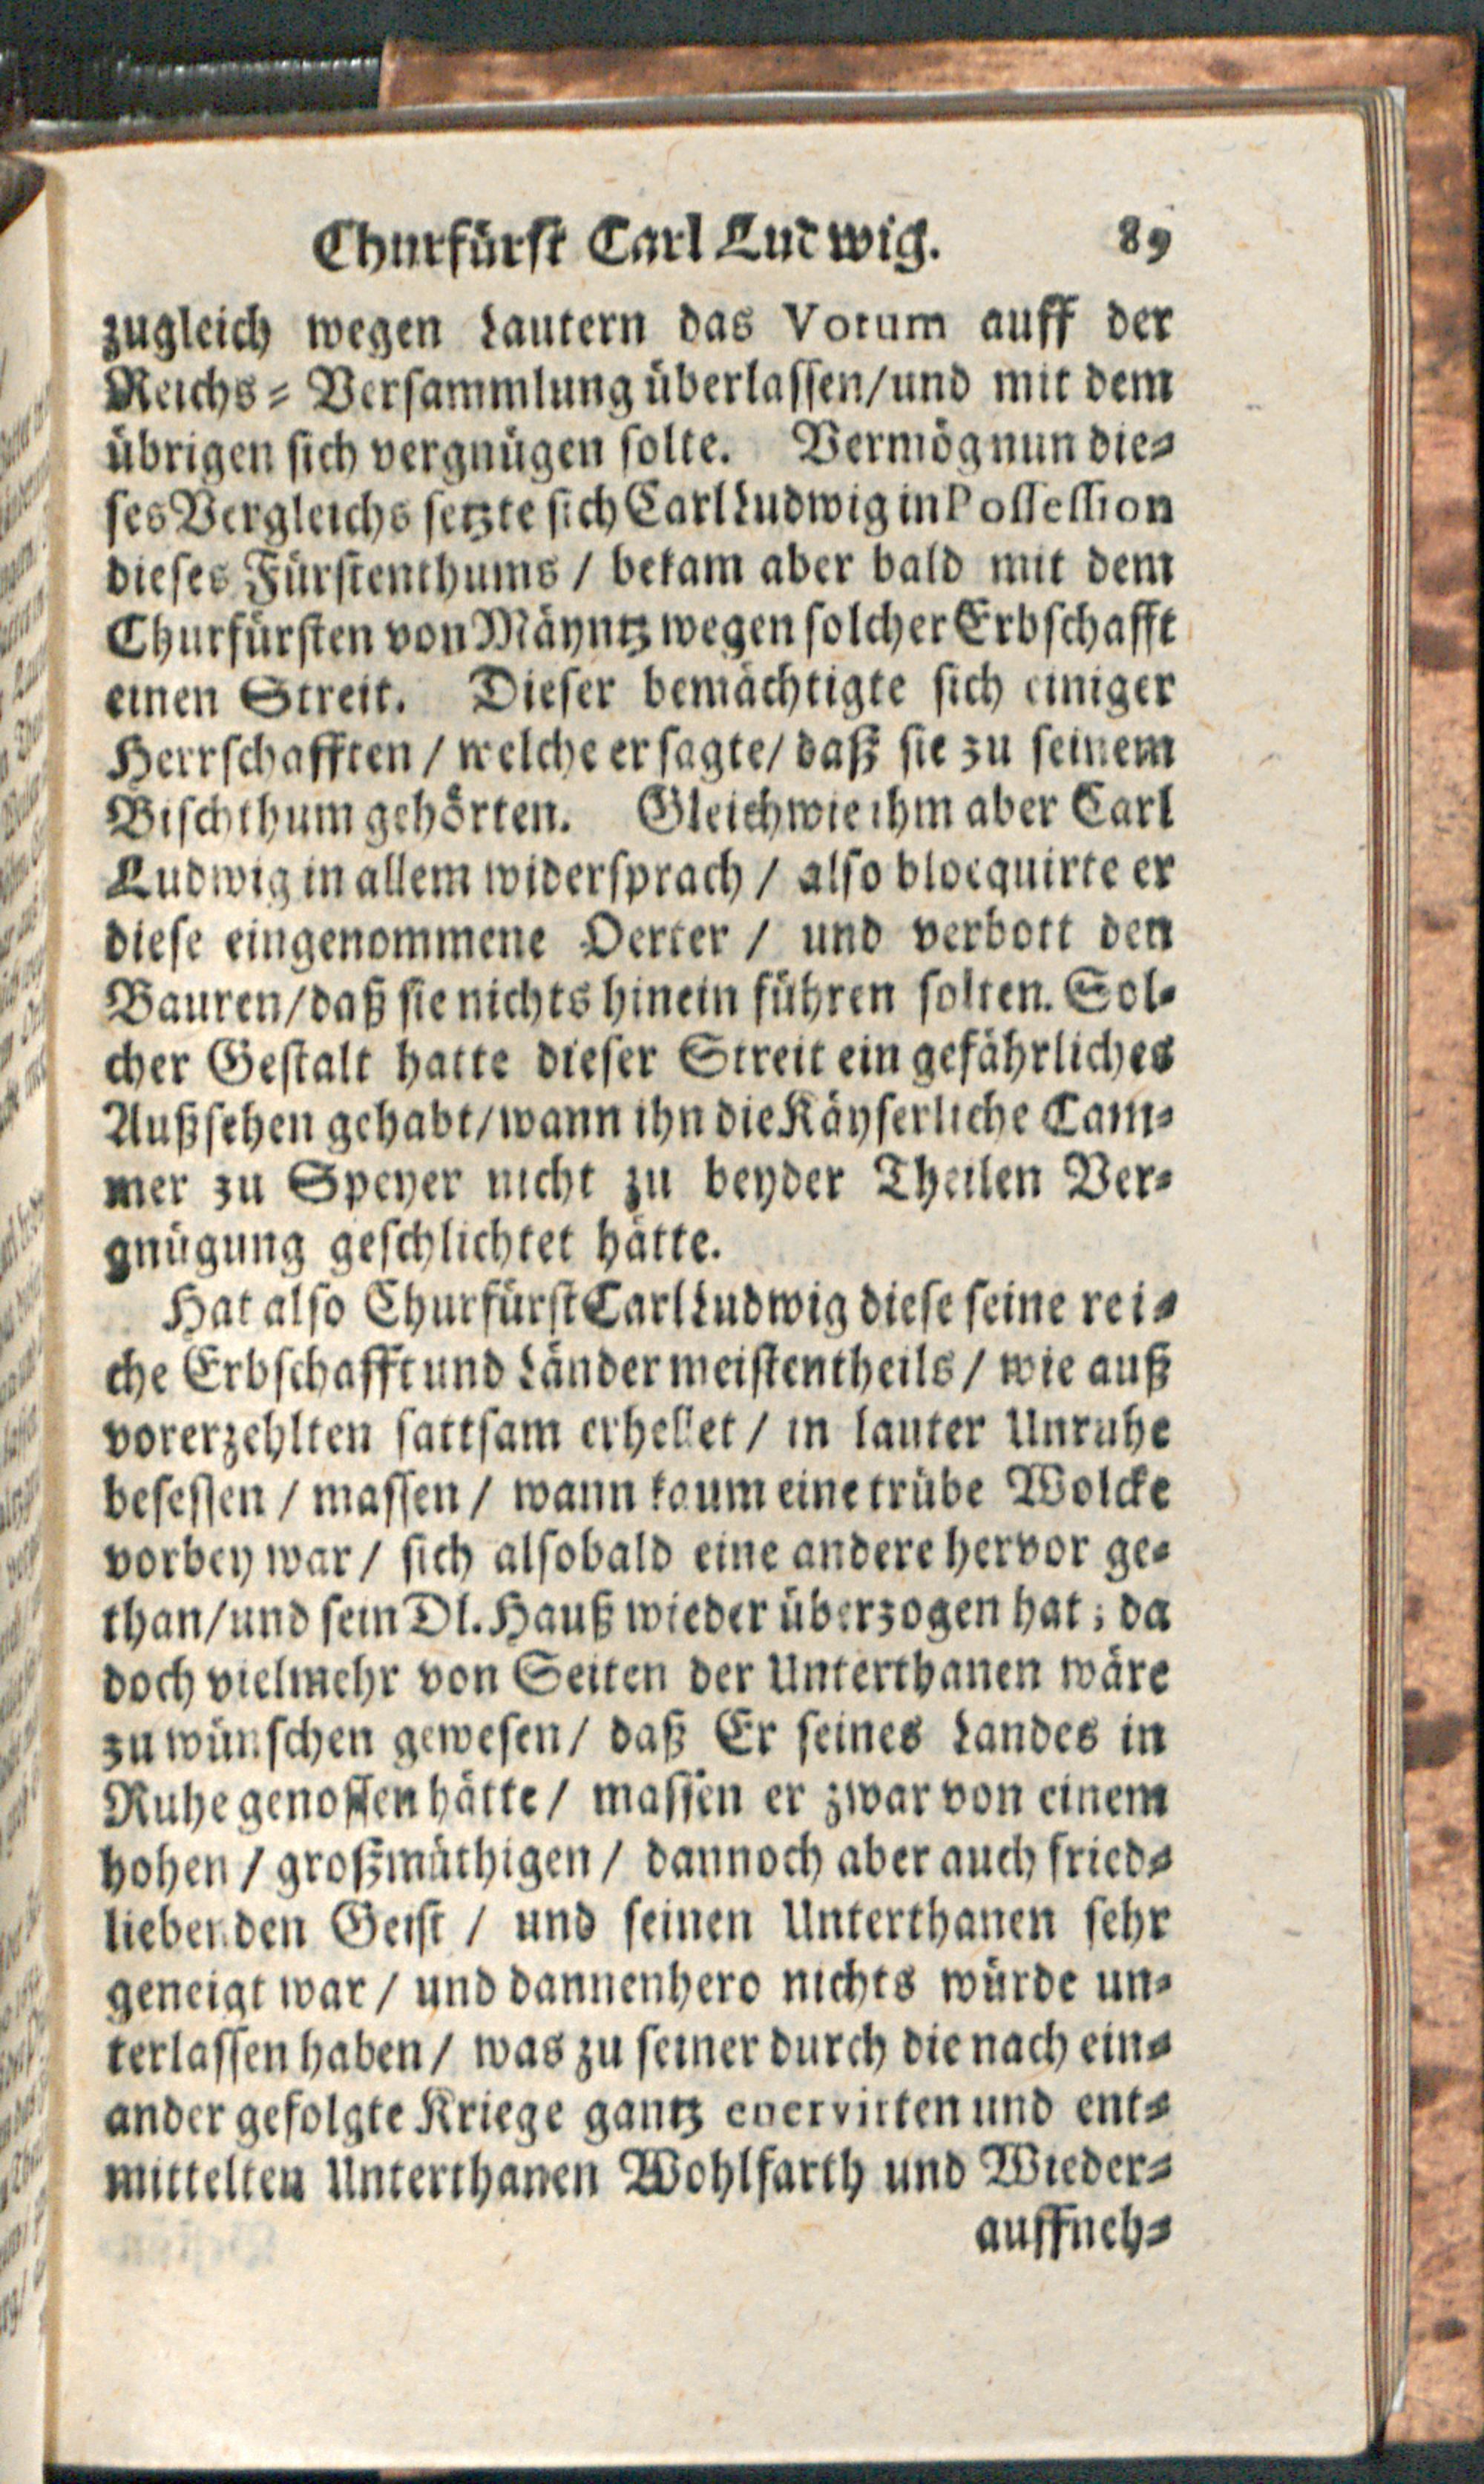 Churfürst Carl Ludwig. 89
zugleich wegen Lautern das Votum auff der
Reichs=Versammlung überlassen/und mit dem
übrigen sich vergnügen solte. Vermög nun die=
ses Vergleichs setzte sich Carl Ludwig in Possession
dieses Fürstenthums / bekam aber bald mit dem
Churfürsten von Mäyntz wegen solcher Erbschafft
einen Streit. Dieser bemächtigte sich einiger
Herrschafften / welche er sagte/ daß sie zu seinem
Bischthum gehörten. Gleichwie ihm aber Carl
Ludwig in allem widersprach / also blocquirte er
diese eingenommene Oerter / und verbott den
Bauren/daß sie nichts hinein führen solten. Sol=
cher Gestalt hatte dieser Streit ein gefährliches
Außsehen gehabt/wann ihn die Käyserliche Cam=
mer zu Speyer nicht zu beyder Theilen Ver=
gnügung geschlichtet hätte.
Hat also Churfürst Carl Ludwig diese seine rei=
che Erbschafft und Länder meistentheils / wie auß
vorerzehlten sattsam erhellet / in lauter Unruhe
besessen / massen / wann kaum eine trübe Wolcke
vorbey war / sich alsobald eine andere hervor ge=
than/und sein Dl. Hauß wieder überzogen hat; da
doch vielmehr von Seiten der Unterthanen wäre
zu wünschen gewesen/ daß Er seines Landes in
Ruhe genossen hätte / massen er zwar von einem
hohen / großmüthigen / dannoch aber auch fried=
liebenden Geist / und seinen Unterthanen sehr
geneigt war / und dannenhero nichts würde un=
terlassen haben / was zu seiner durch die nach ein=
ander gefolgte Kriege gantz enervirten und ent=
mittelten Unterthanen Wohlfarth und Wieder=
auffneh=